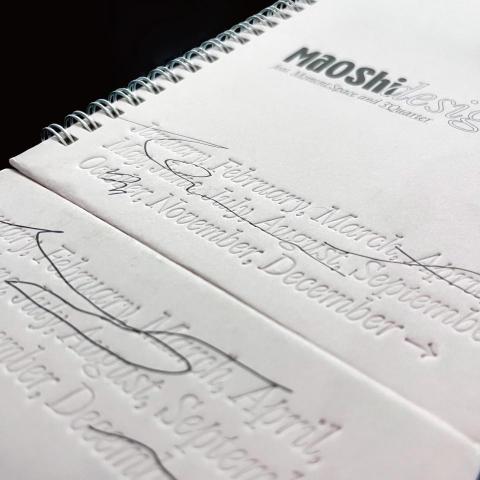 Maoshidesig
Moment, Space and 3Quarter
January, February, March, April
July, August, September
October, November, December →
February, March, April,
July, August, September
December